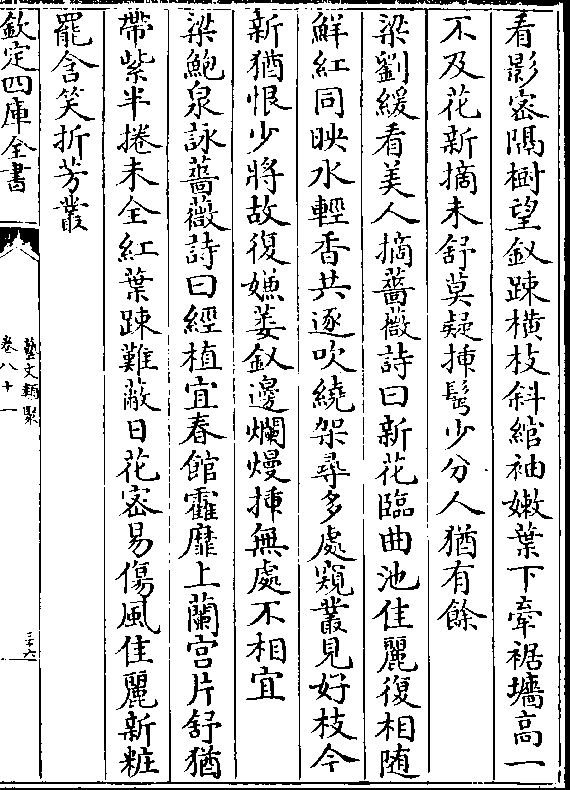 看影密隅樹望釵踈橫枝斜綰袖嫩葉下牽裾墻高一
不及花新摘未舒莫疑揷髩少分人猶有餘
梁劉緩看美人摘薔薇詩曰新花臨曲池佳麗復相随
鮮紅同映水輕香共逐吹繞架尋多處窺叢見好枝今
新猶恨少將故復嫌萎釵邊爛熳揷無處不相宜
梁鮑泉詠薔薇詩曰經植宜春館霍靡上蘭宫片舒猶
帶紫半捲未全紅葉踈難蔽日花密易傷風佳麗新粧
罷含笑折芳叢
欽定四庫全書
藝文類聚
卷八十一
三六